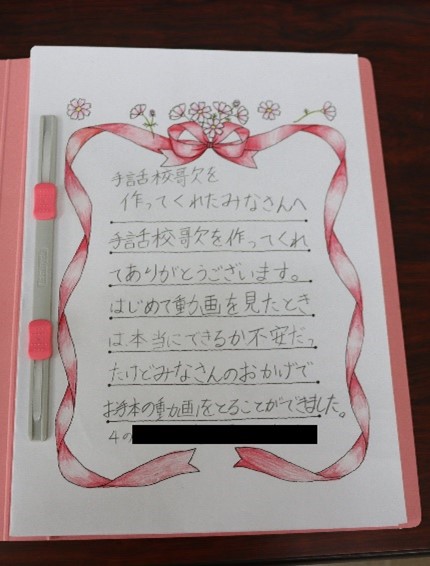 手話校歌を
作ってくれたみなさんへ
手話校歌を作ってくれ
てありがとうございます。
はじめて動画を見たとき
は本当にできるか不安だっ
たけどみなさんのおかげで
お手本の動画をとることができました。
4の